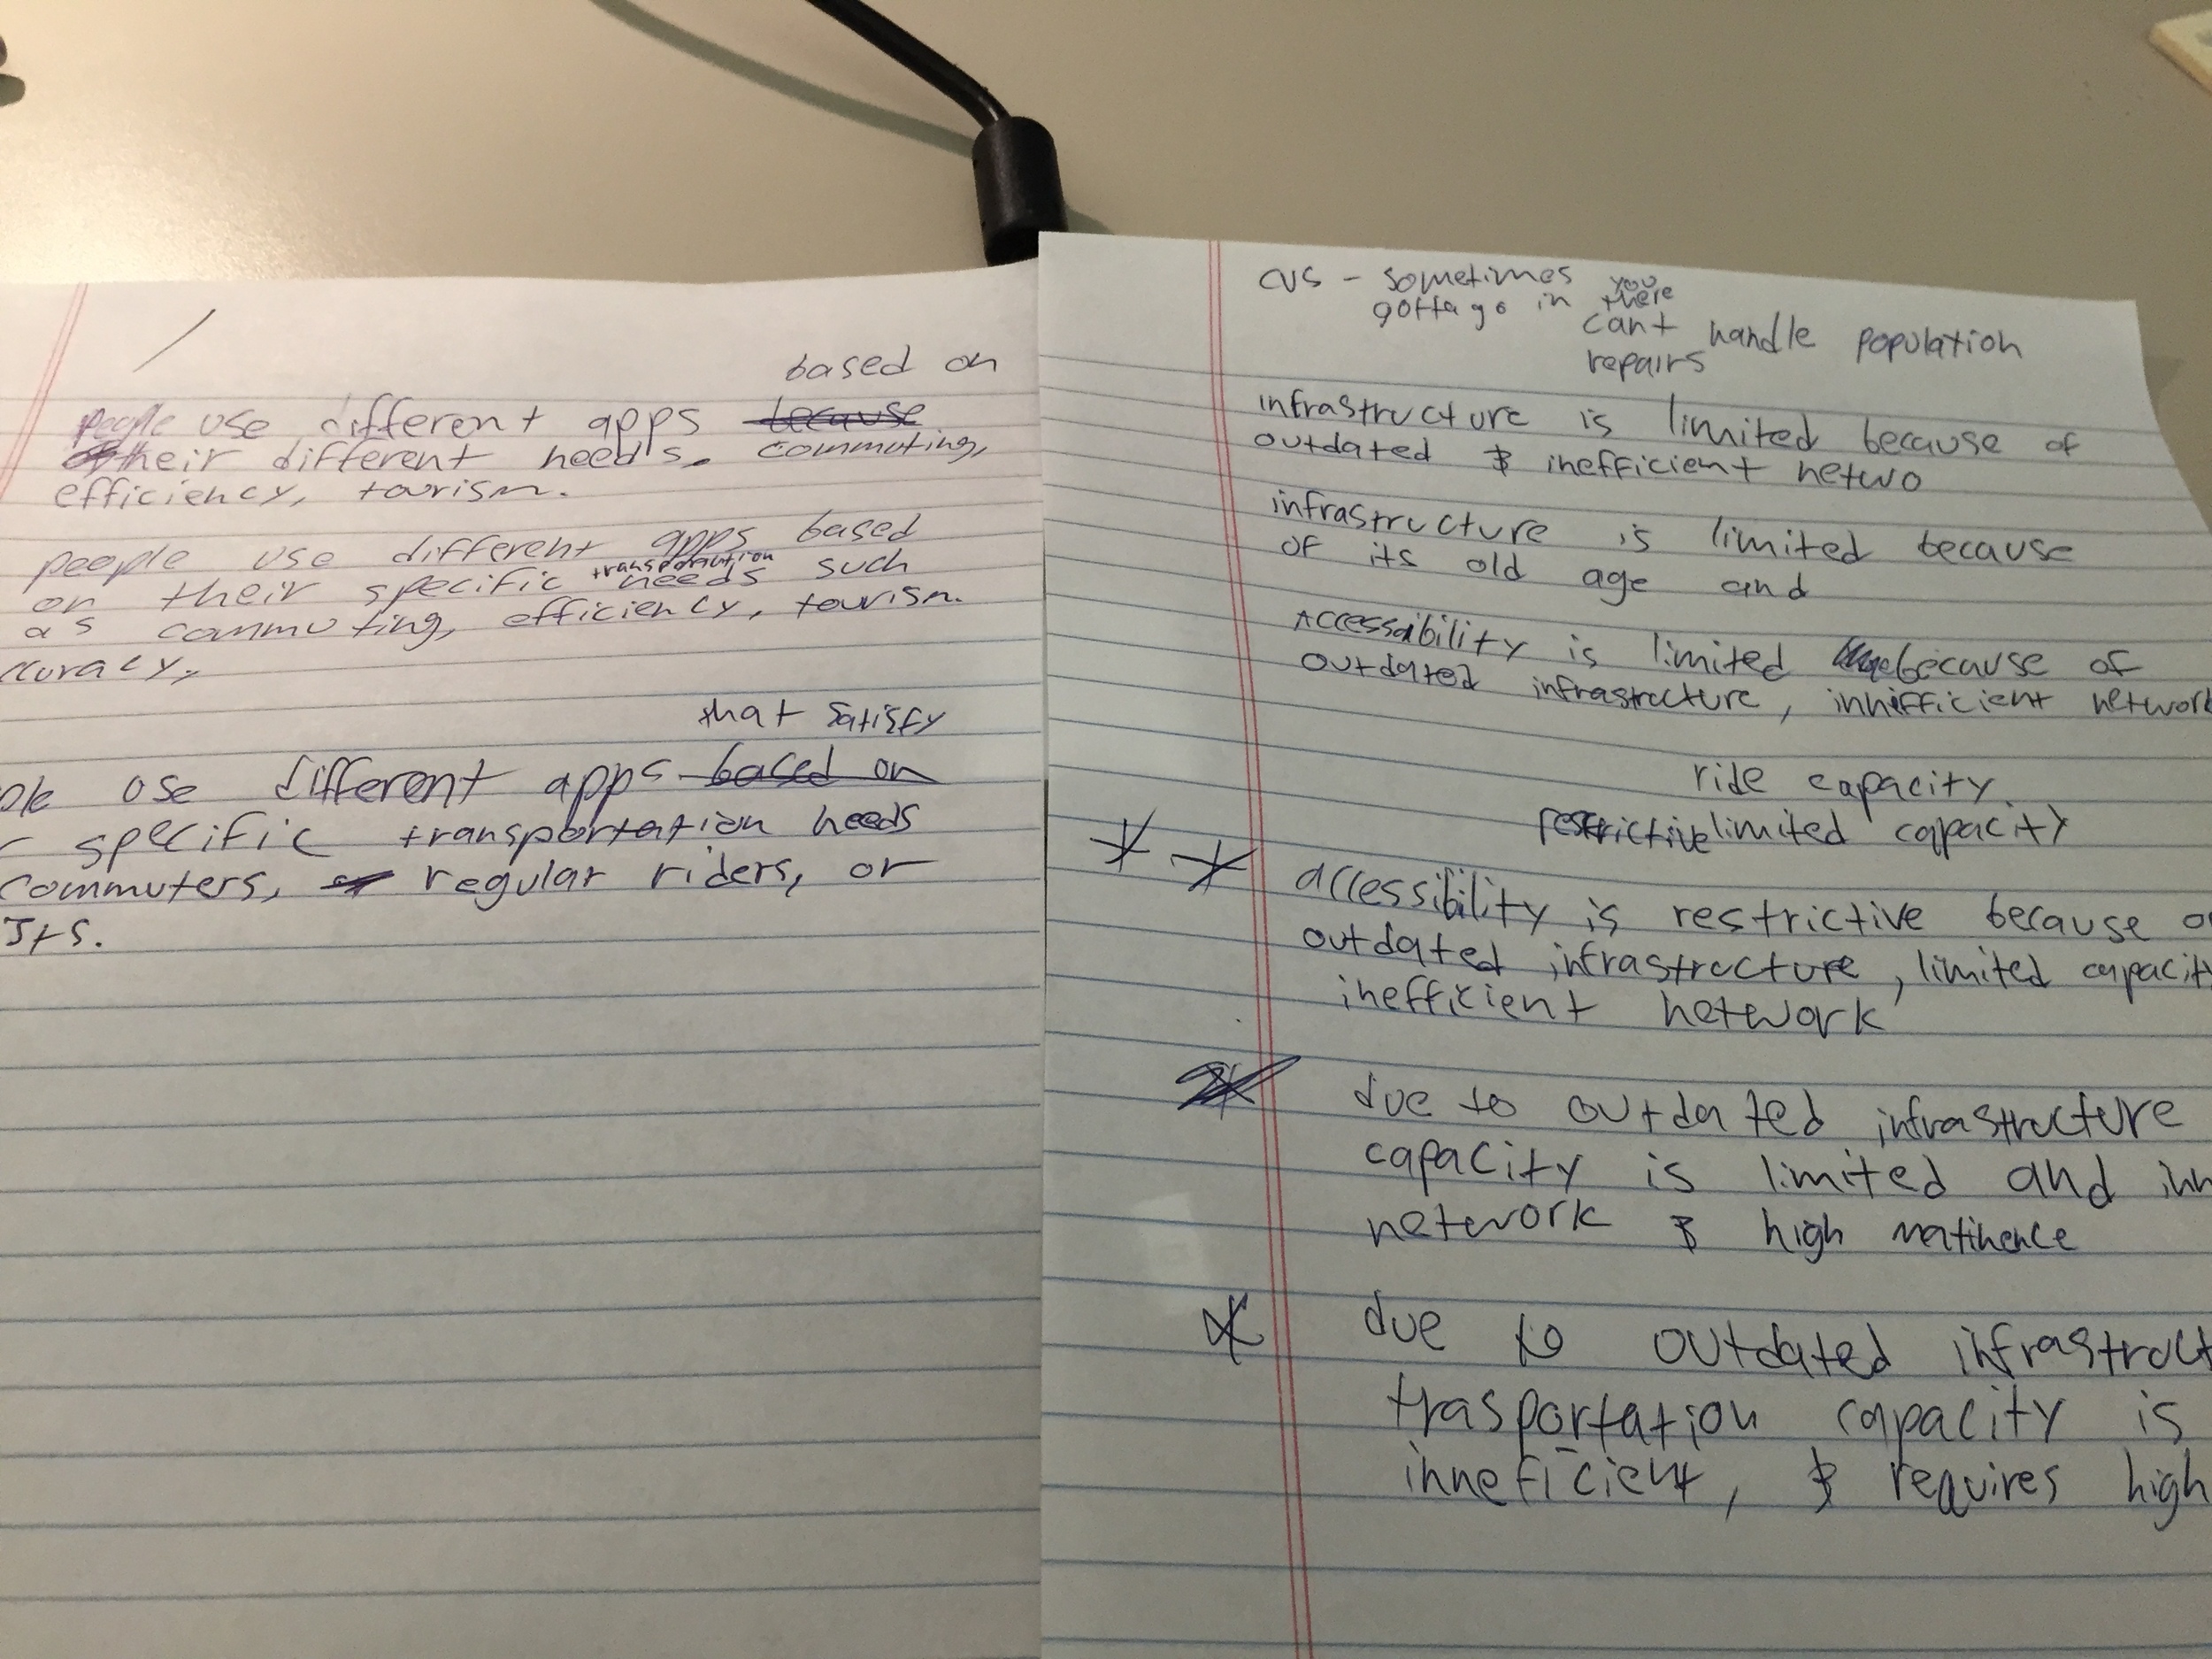 based on
people use different apps because
their different needs. commuting,
efficiency, tourism.
people use different apps based
transportation
on their specific needs such
as commuting, efficiency, tourism.
ccuracy,
that satisfy
ple use different apps based on
r specific transportation needs
commuters, or regular riders, or
sts.
CVS - sometimes you
gotta go in there
cant handle population
repairs
infrastructure is limited because of
outdated & inefficient netwo
infrastructure is limited because
of its old age and
Accessability is limited because of
outdated infrastructure, innifficient network
ride capacity
restrictive limited capacity
accessibility is restrictive because o
outdated infrastructure, limited capacity
inefficient network
due to outdated infrastructure
capacity is limited and inn
network & high matinence
due to outdated infrastruct
trasportation capacity is
inneficient, & requires high